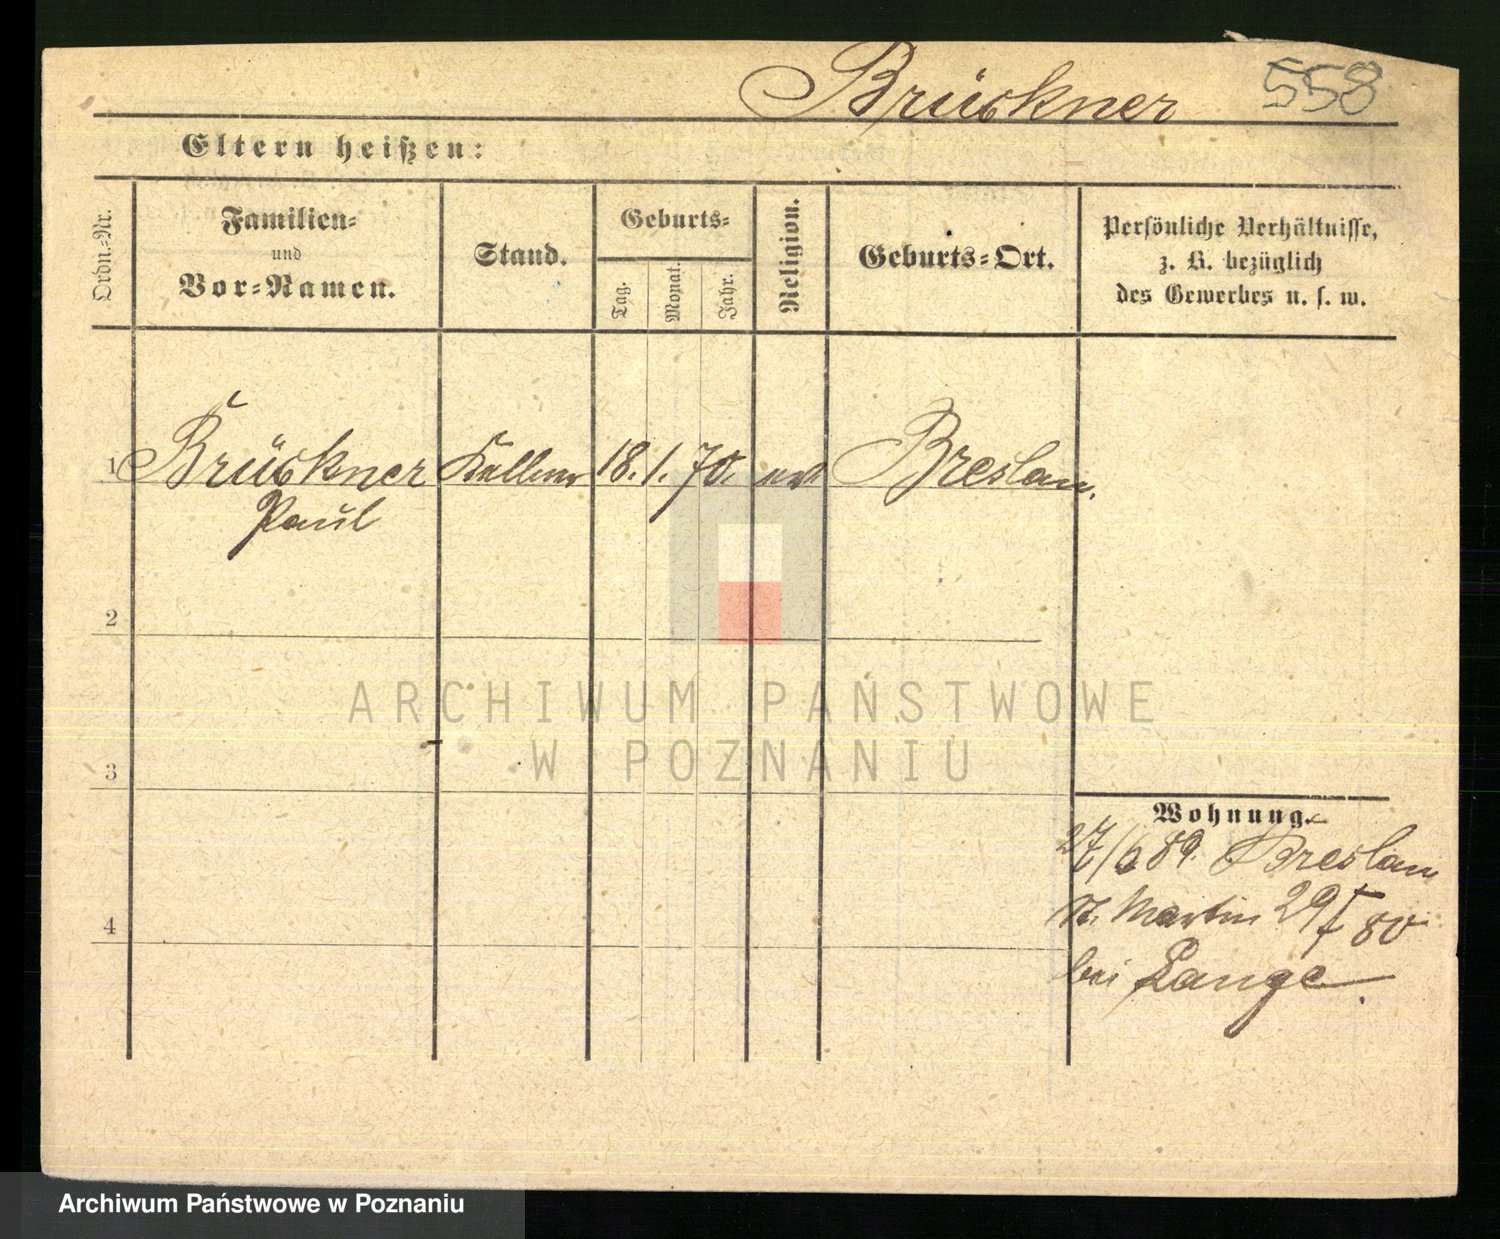 Brückner 558
Eltern heißen:
Ordn.=Nr.
Familien=
und
Vor=Namen.
Stand.
Geburts=
Tag.
Monat.
Jahr.
Religion.
Geburts=Ort.
Persönliche Verhältnisse,
z. B. bezüglich
des Gewerbes u. s. w.
1 Brückner Kellner 18. 1. 70. ev Breslau.
Paul
2
3
4
Wohnung.
27/6 89. Breslau
St. Martin 29
bei Lange.
ARCHIWUM PAŃSTWOWE
W POZNANIU
Archiwum Państwowe w Poznaniu